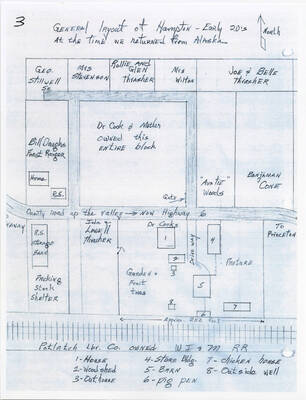 3
GENERAL layout of Hampton - EARly 20's
At the time we returned from Alaska.
North
GEO.
Stillwell
MRS
STEVENSON
ROLLIE AND
GLEN
THRASHER
MRS
Wilton
JOE & BELLE
THRASHER
Dr Cook & Mother
OWNED this
ENTIRE block
Bill Daughs
Forest Ranger
House
R.S.
"Auntie"
Woods
BENJAMAN
CONE
Gate
County road up the valley → Now Highway 6
To
PRINCETON
R.S.
storage
barn
Packing
Stock
Shelter
John &
Lowell
Thrasher
Dr Cooks
1
2
3
4
5
6
7
8
Drive way
Garden &
Fruit
trees
Pasture
Potlatch Lbr. Co. OWNED W I & M RR
1 - House
2 - Woodshed
3 - Outhouse
4 - Store Bldg.
5 - BARN
6 - pig pen
7 - chicken house
8 - Outside well